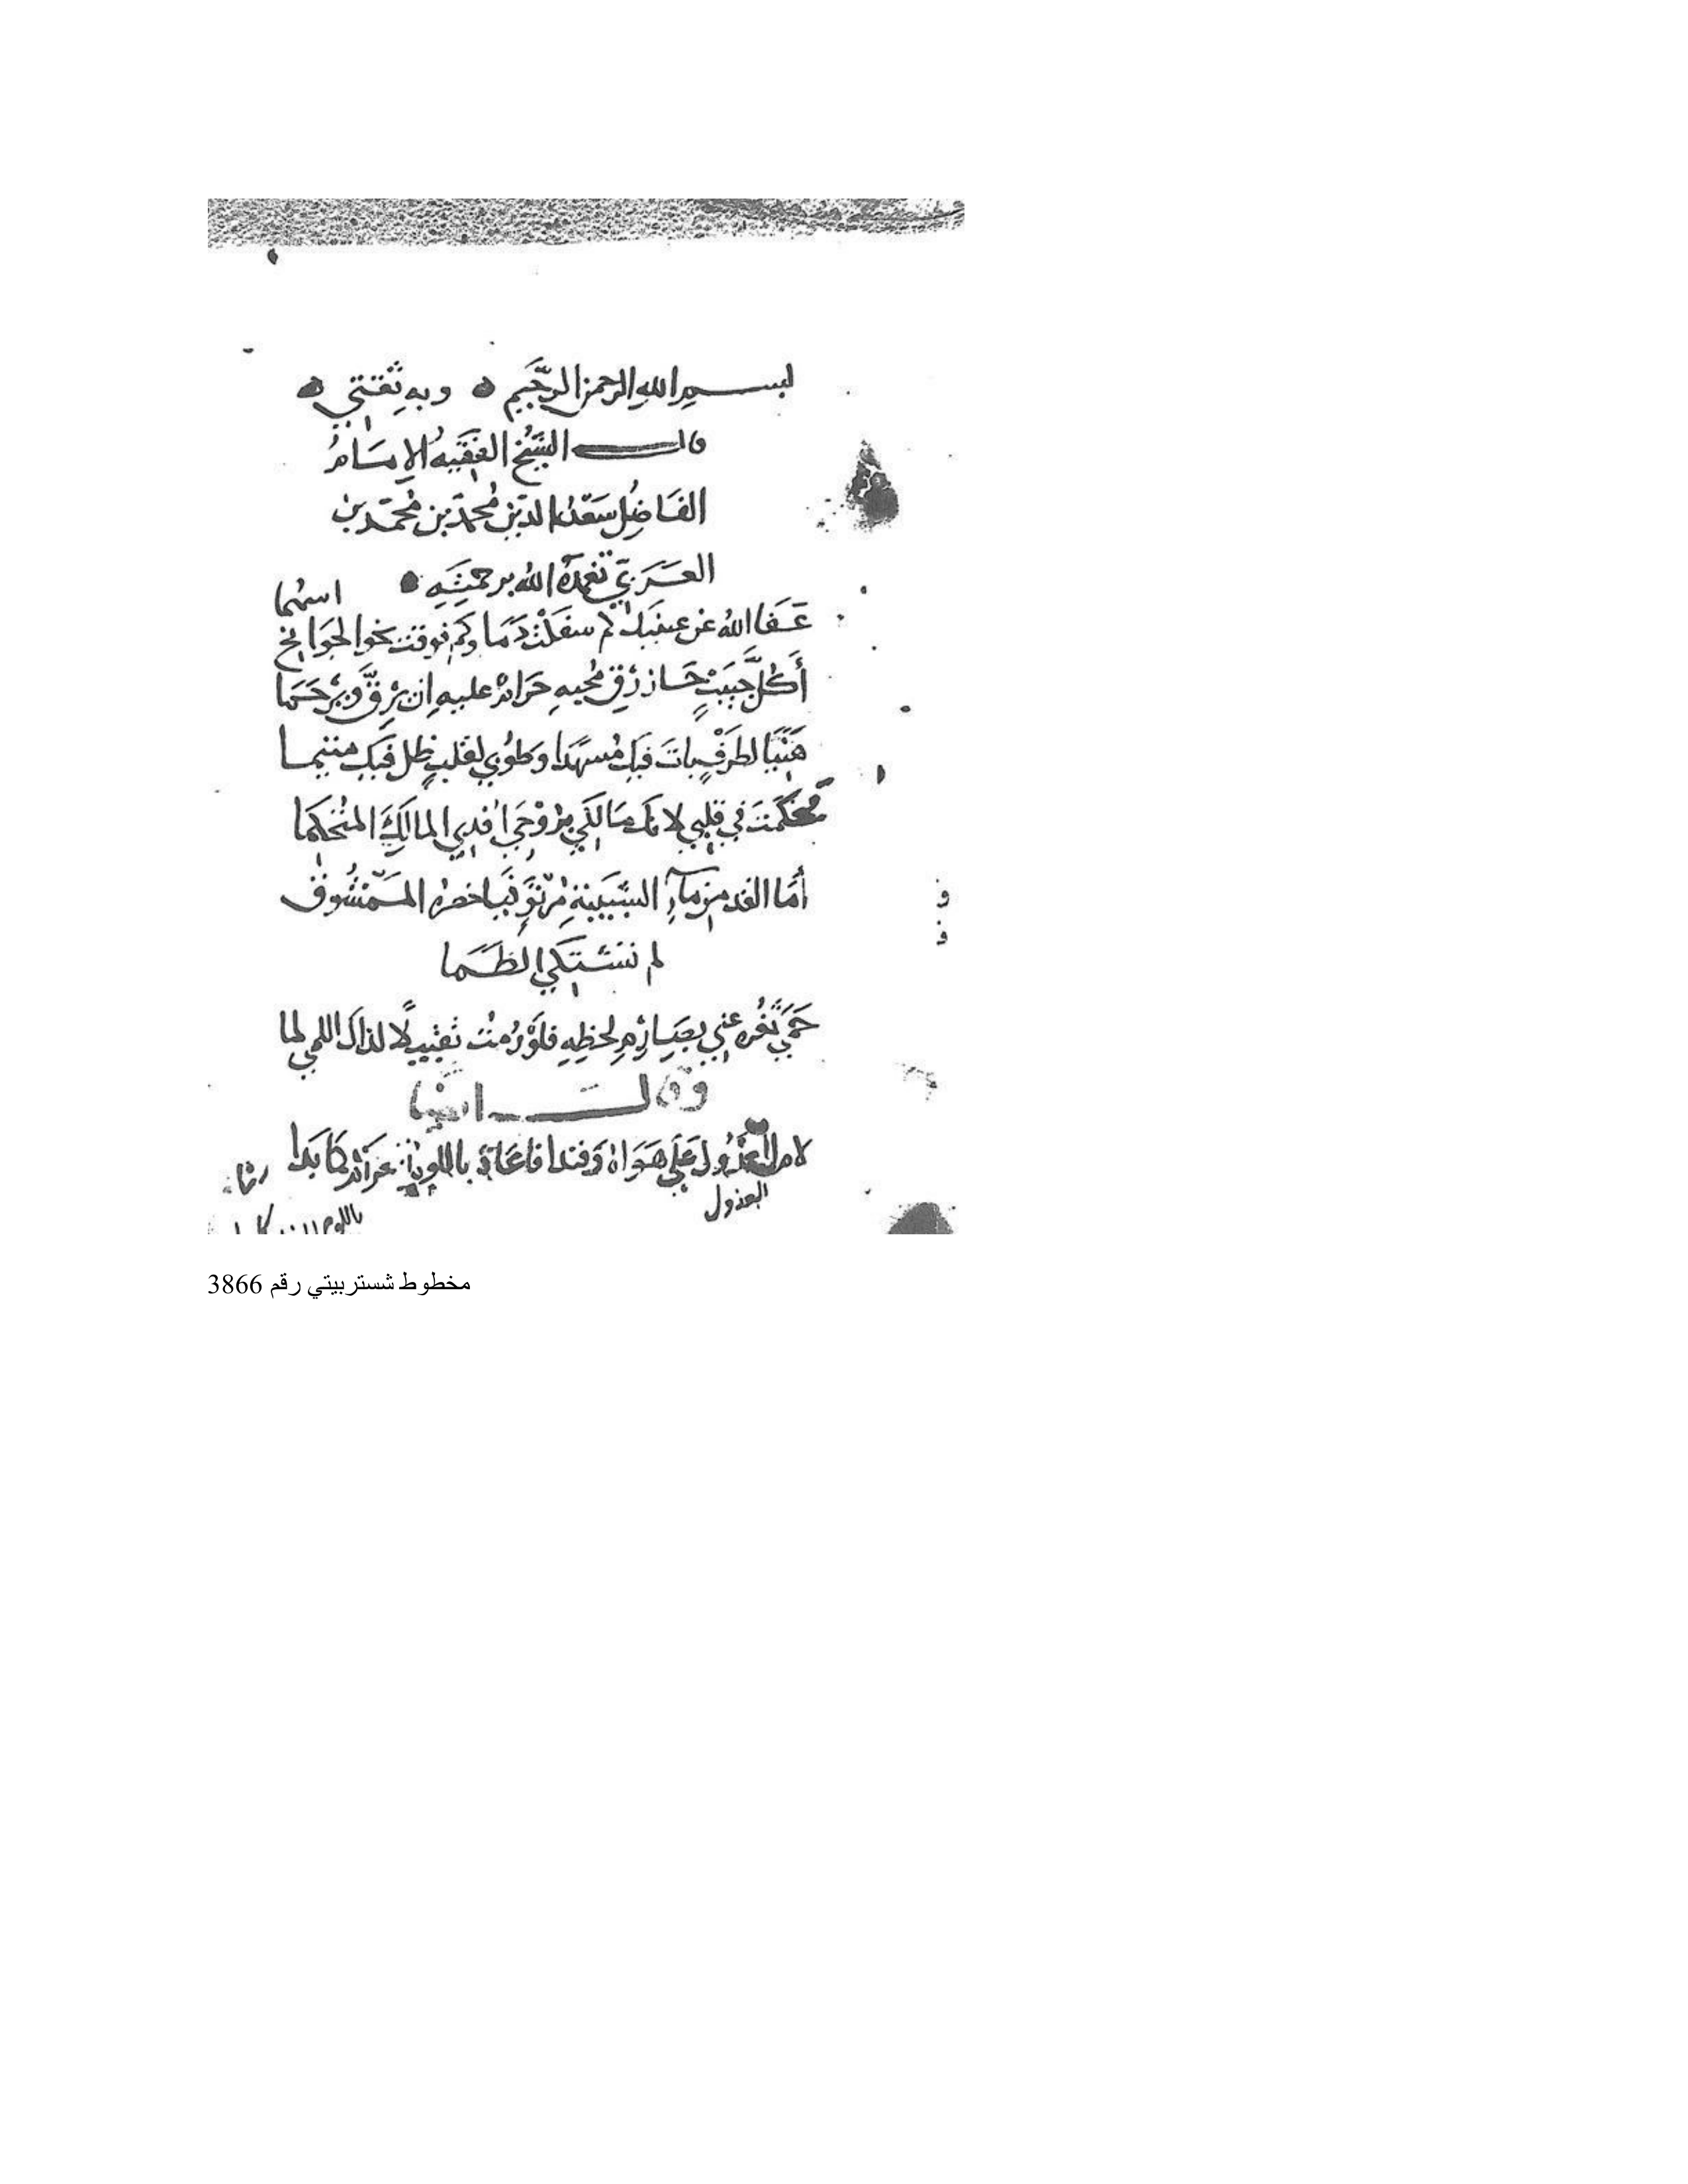 بسم الله الرحمن الرحيم وبه ثقتي
قال الشيخ الفقيه الإمام
الفاضل سعد الدين محمد بن محمد بن
العربي تغمده الله برحمته
اسهما
عَفَا الله عن عينيك كم سفكت دَمًا وكم فوقت نحو الجَوَانح
أَكُلُّ حَبيبٍ حَاز رِق محبيهِ حَرام عليه ان يَرِقَّ وَيَرْحَمَا
هَنيًا لطَرْفٍ بات فيك مُسهدا وطوبي لقلبٍ ظل فيك متيما
تحكمتَ في قلبي لانك مَالكي برُوْحي أفدي المالك المتحكما
أمَا القد من مآءِ الشبيبة مُرتوٍ فيا خصره الممشوق
لم تشتكي الظمَا
حَمَى ثغره عني بصَارِم لحظِهِ فلوْ رُمت تقبيلًا لذاك اللمي لما
وقال ايضا
لام العذول على هَوَاهُ وَفندا فاعَادَ باللوم الغرام كما بدا
العذول
باللوم
مخطوط شستربيتي رقم 3866